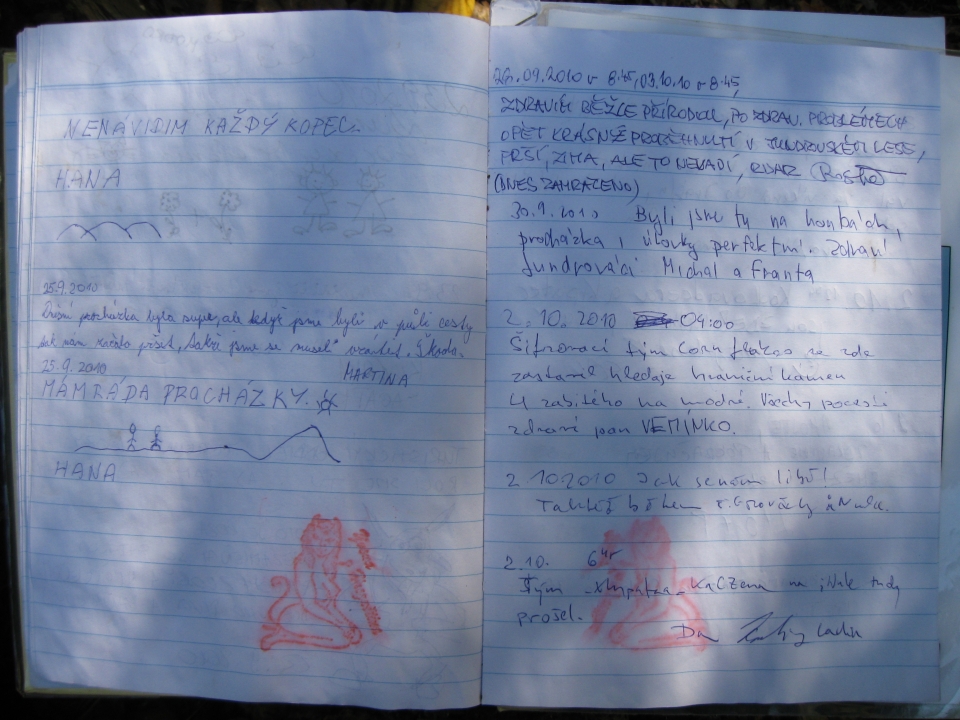 NENÁVIDÍM KAŽDÝ KOPEC.
HANA
25.9.2010
Dnešní procházka byla super, ale když jsme byli v půli cesty
tak nám začalo pršet, takže jsme se museli vrátit. Škoda.
MARTINA
25.9.2010
MÁM RÁDA PROCHÁZKY.
HANA
26.09.2010 v 8:45, 03.10.10 v 8:45,
ZDRAVÍM BĚŽCE PŘÍRODOU, PO ZDRAV. PROBLÉMECH
OPĚT KRÁSNÉ PROBĚHNUTÍ V JUNDROVSKÉM LESE,
PRŠÍ, ZIMA, ALE TO NEVADÍ,
(DNES ZAMRAČENO)
30.9.2010 Byli jsme tu na houbách,
procházka i úlovky perfektní. Zdraví
Jundrováci Michal a Franta
2.10.2010 04:00
Šifrovací tým Corn flákos se zde
zastavil hledaje hraniční kámen
4 zabitého na modré. Všechny pocestné
zdraví pan VEMÍNKO.
2.10.2010 Jak se nám líbí!
Taktéž během
2.10. 6
Tým na tudy
prošel.